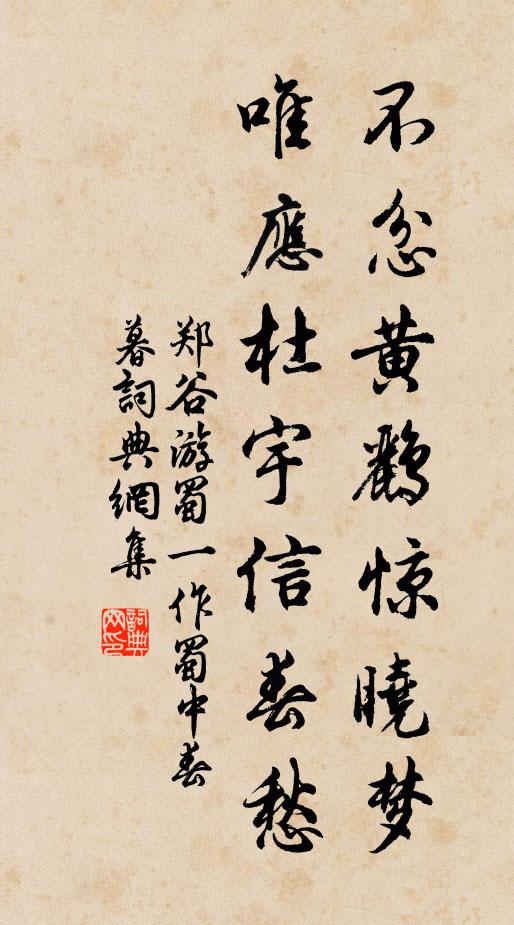 不忿黄鹂惊晓梦
唯應杜宇信春愁
郑谷游蜀一作蜀中春
暮詞典網集
詞典網印